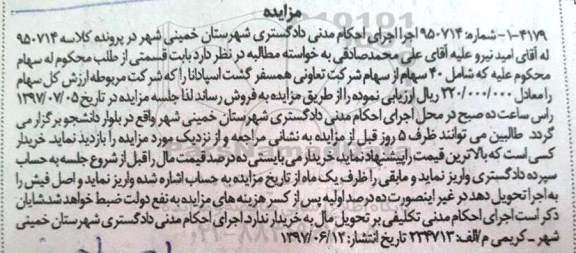 مزایده
۱-۴۱۷۹- شماره: ۹۵۰۷۱۴ اجرا اجرای احکام مدنی دادگستری شهرستان خمینی شهر در پرونده کلاسه ۹۵۰۷۱۴
له آقای امید نیرو علیه آقای علی محمدصادقی به خواسته مطالبه در نظر دارد بابت قسمتی از طلب محکوم له سهام
محکوم علیه که شامل ۴۰ سهام از سهام شرکت تعاونی همسفر گشت اسپادانا را که شرکت مربوطه ارزش کل سهام
را معادل ۳۲۰/۰۰۰/۰۰۰ ریال ارزیابی نموده را از طریق مزایده به فروش رساند لذا جلسه مزایده در تاریخ ۱۳۹۷/۰۷/۰۵
راس ساعت ده صبح در محل اجرای احکام مدنی دادگستری شهرستان خمینی شهر واقع در بلوار دانشجو برگزار می
گردد طالبین می توانند ظرف ۵ روز قبل از مزایده به نشانی مراجعه و از نزدیک مورد مزایده را بازدید نماید. خریدار
کسی است که بالاترین قیمت را پیشنهاد نماید. خریدار می بایستی ده درصد قیمت مال را قبل از شروع جلسه به حساب
سپرده دادگستری واریز نماید و مابقی را ظرف یک ماه از تاریخ مزایده به حساب اشاره شده واریز نماید و اصل فیش را
به اجرا تحویل دهد در غیر اینصورت ده درصد اولیه پس از کسر هزینه های مزایده به نفع دولت ضبط خواهد شد شایان
ذکر است اجرای احکام مدنی تکلیفی بر تحویل مال به خریدار ندارد. اجرای احکام مدنی دادگستری شهرستان خمینی
شهر - کریمی م/الف: ۲۳۴۷۱۳ تاریخ انتشار: ۱۳۹۷/۰۶/۱۲